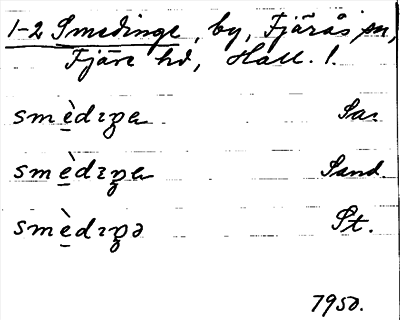 1-2 Smedinge, by, Fjärås sn,
Fjäre hd, Hall. l.
smὲdıŋa Sa.
smὲdıŋa Sand.
smὲdıŋə St.
1950.